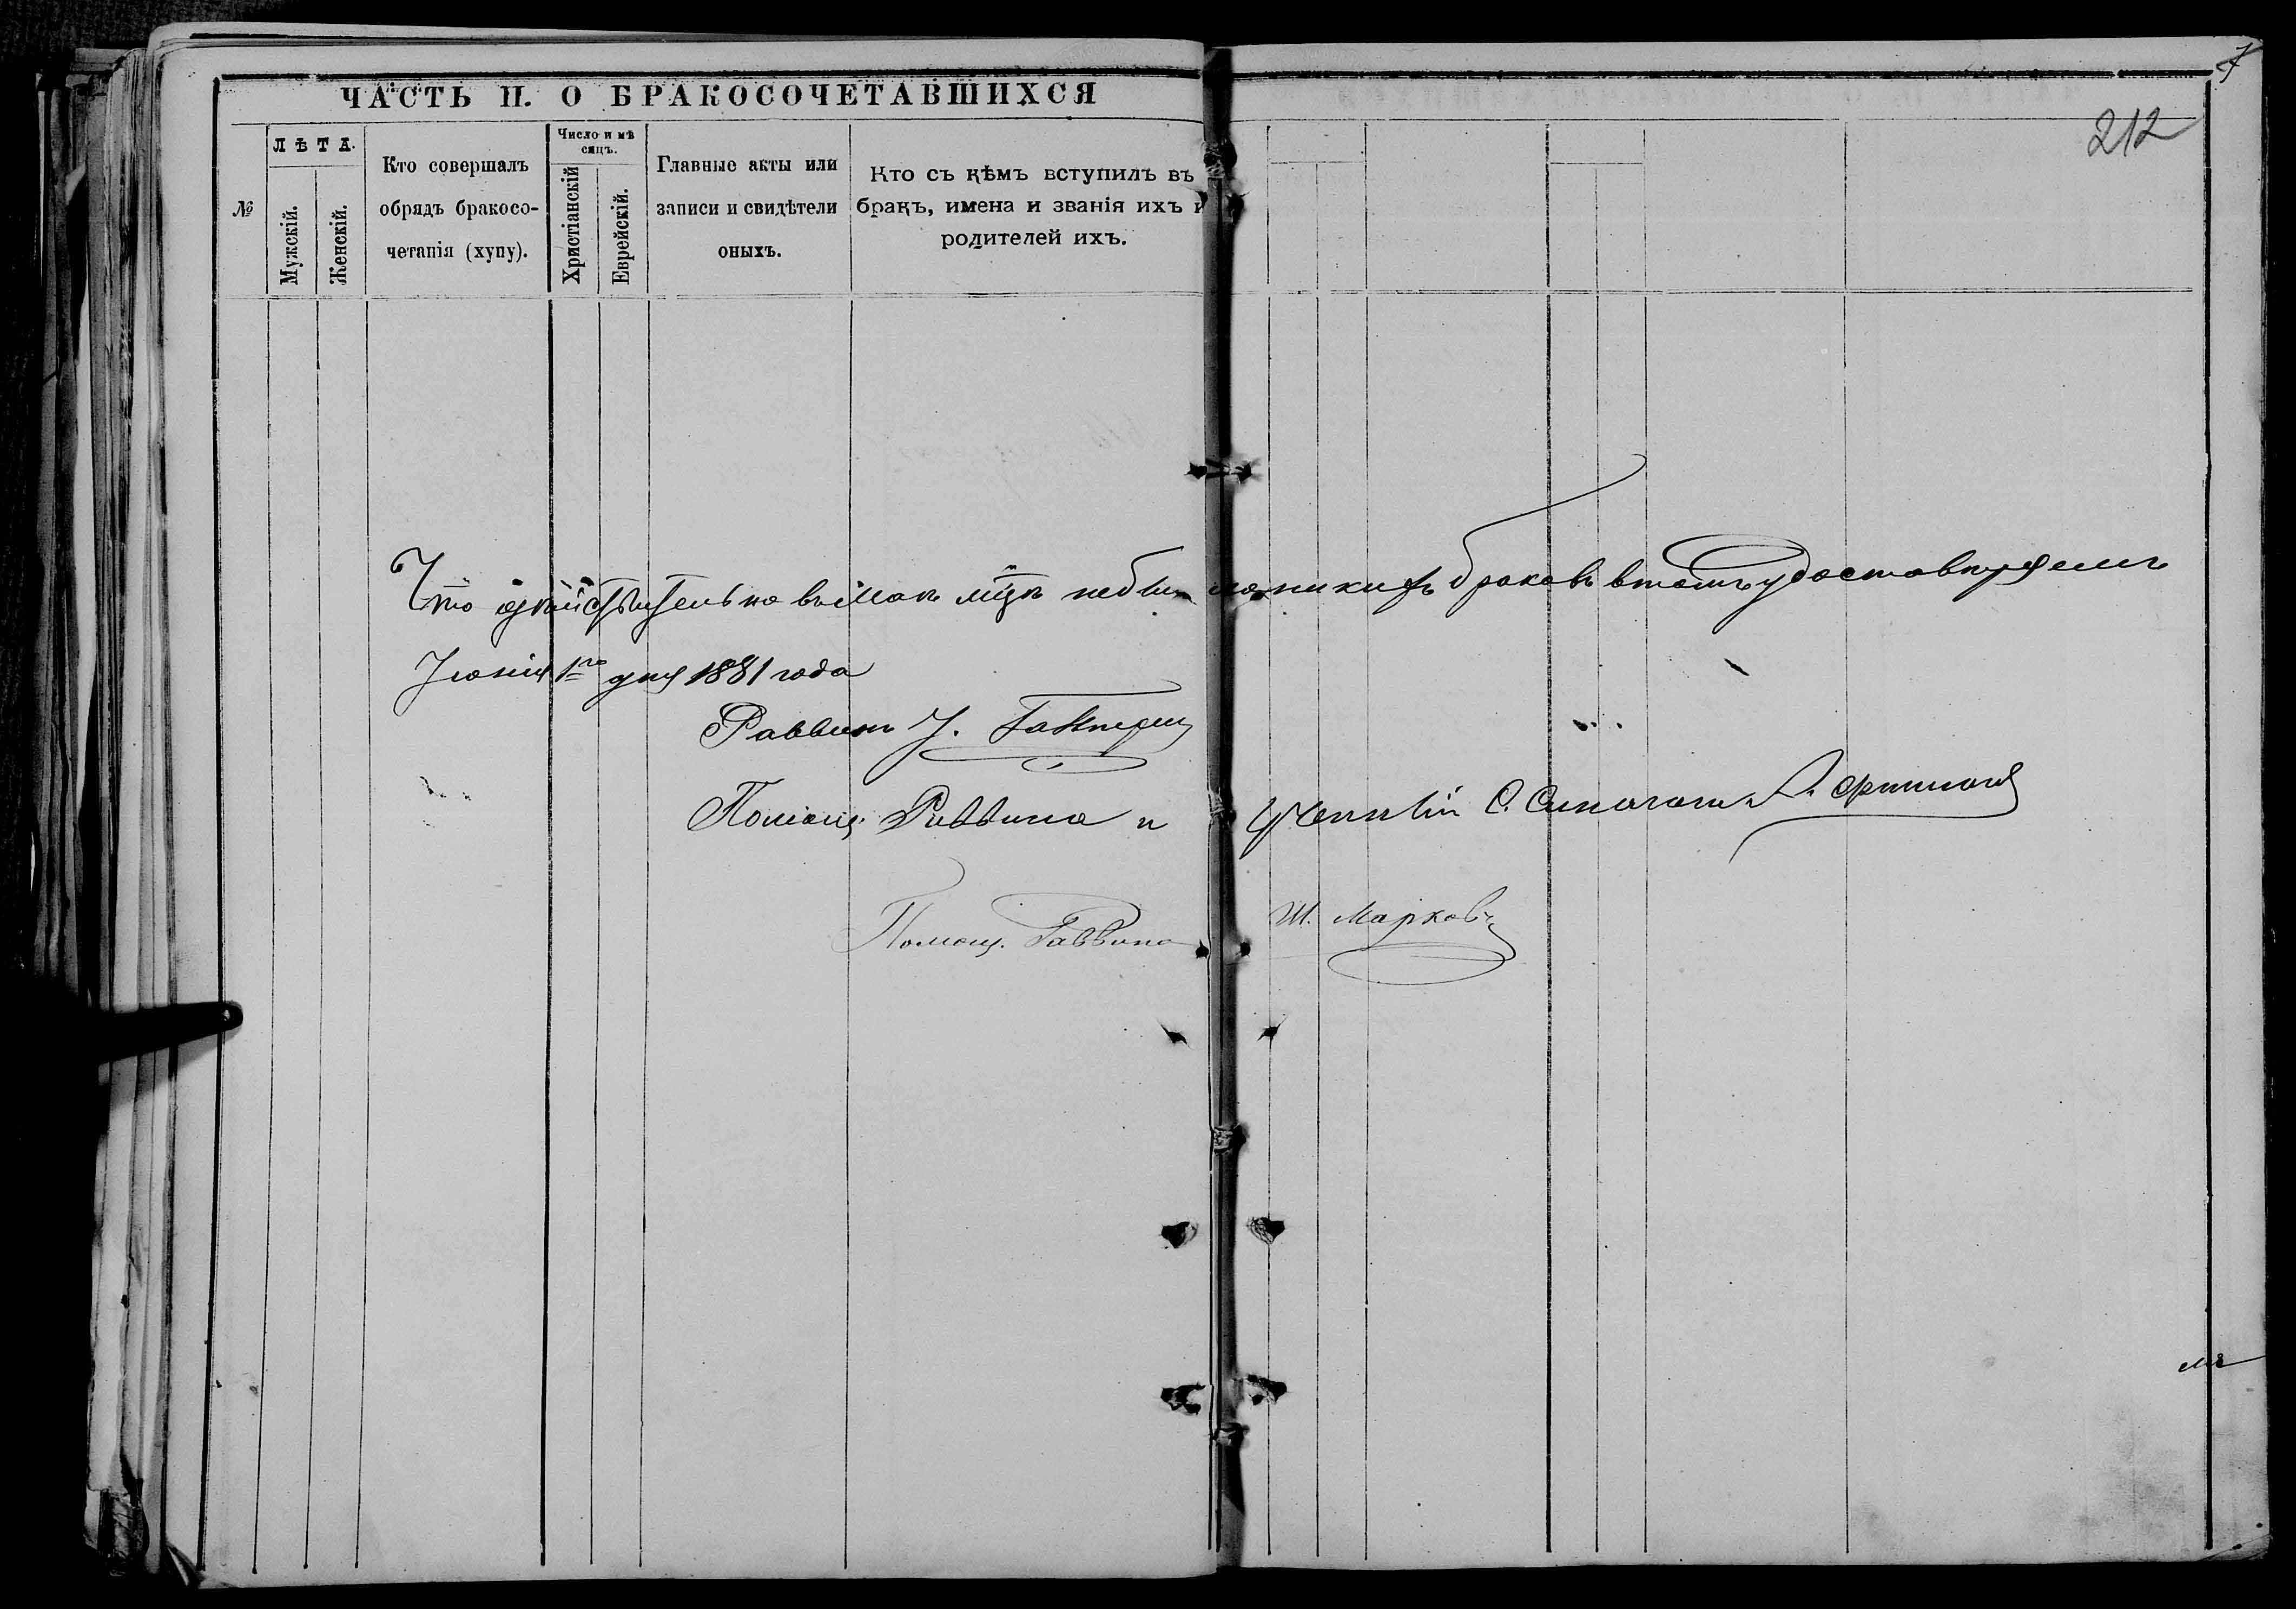 7
212
ЧАСТЬ II. О БРАКОСОЧЕТАВШИХСЯ
№
ЛѢТА.
Мужскій.
Женскій.
Кто совершалъ
обрядъ бракосо-
четанія (хупу).
Число и мѣ
сяцъ.
Христіанскій
Еврейскій.
Главные акты или
записи и свидѣтели
оныхъ.
Кто съ кѣмъ вступилъ въ
бракъ, имена и званія ихъ и
родителей ихъ.
Что дѣйствительно въ Маѣ мцѣ небыло никакихъ браковъ втомъ удостовѣряемъ
Іюня 1го дня 1881 года
Раввинъ
Помощ. Раввина и
Помощ. Раввина Ш. Марковъ